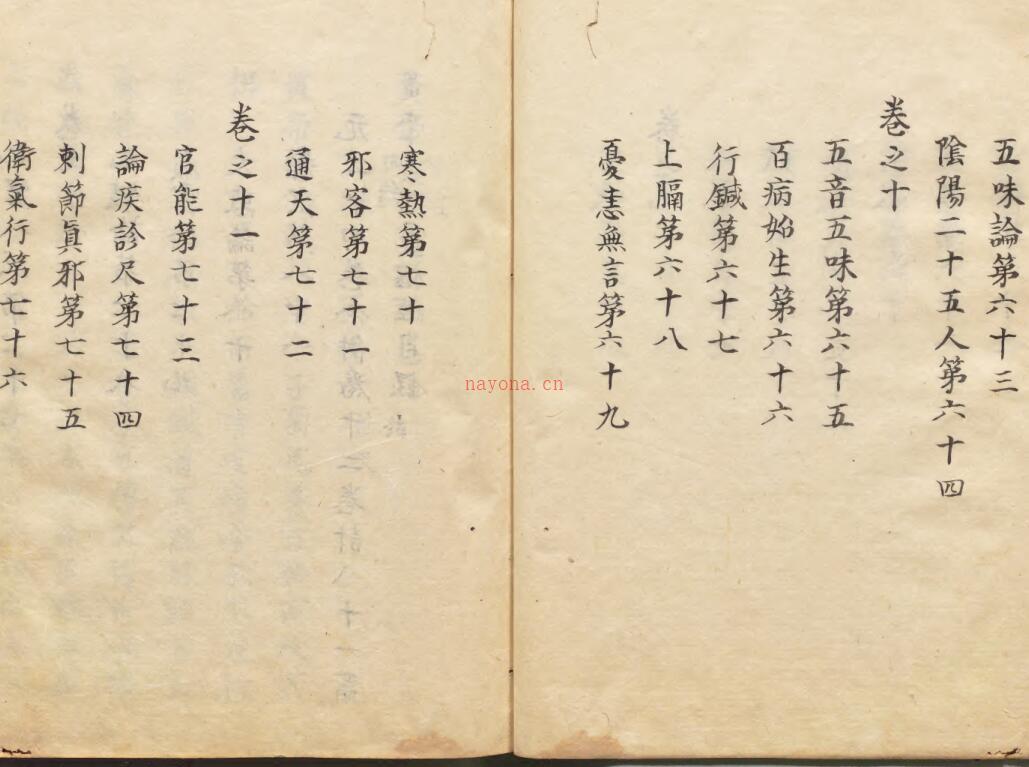 五味論第六十三
陰陽二十五人第六十四
卷之十
五音五味第六十五
百病始生第六十六
行鍼第六十七
上膈第六十八
憂恚無言第六十九
寒熱第七十
邪客第七十一
通天第七十二
卷之十一
官能第七十三
論疾診尺第七十四
刺節眞邪第七十五
衛氣行第七十六
nayona.cn